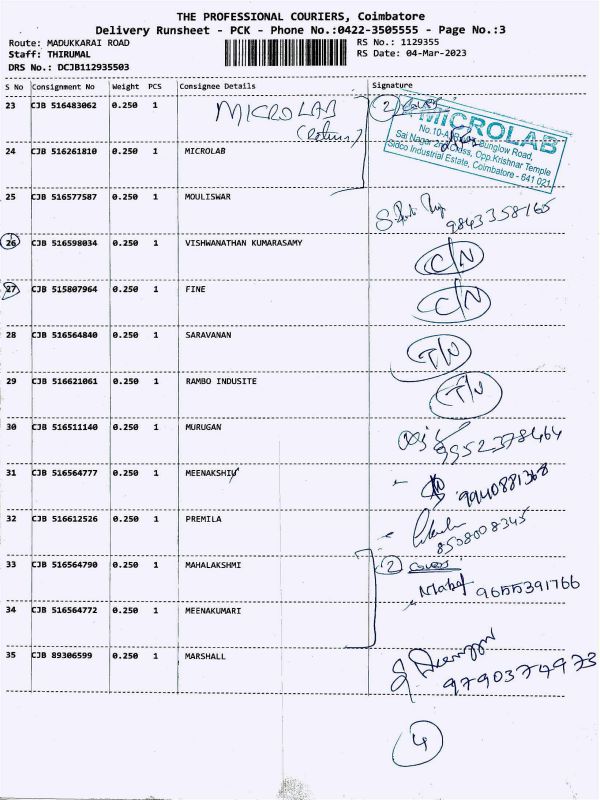 THE PROFESSIONAL COURIERS, Coimbatore
Delivery Runsheet - PCK - Phone No.:0422-3505555 - Page No.:3
Route: MADUKKARAI ROAD RS No.: 1129355
Staff: THIRUMAL RS Date: 04-Mar-2023
DRS No.: DCJB112935503
S No Consignment No Weight PCS Consignee Details Signature
23 CJB 516483062 0.250 1 MICROLAB 2 Covers
(Return)
MICROLAB
Sai Nagar 2nd Cross, Opp.Krishnar Temple
Sidco Industrial Estate, Coimbatore - 641 021
24 CJB 516261810 0.250 1 MICROLAB
25 CJB 516577587 0.250 1 MOULISWAR
9843358165
26 CJB 516598034 0.250 1 VISHWANATHAN KUMARASAMY C/N
27 CJB 515807964 0.250 1 FINE C/N
28 CJB 516564840 0.250 1 SARAVANAN T/N
29 CJB 516621061 0.250 1 RAMBO INDUSITE T/N
30 CJB 516511140 0.250 1 MURUGAN 9952378464
31 CJB 516564777 0.250 1 MEENAKSHIU 9940881368
32 CJB 516612526 0.250 1 PREMILA
8508008345
33 CJB 516564790 0.250 1 MAHALAKSHMI 2 Covers
9655391766
34 CJB 516564772 0.250 1 MEENAKUMARI
35 CJB 89306599 0.250 1 MARSHALL
9790374973
4